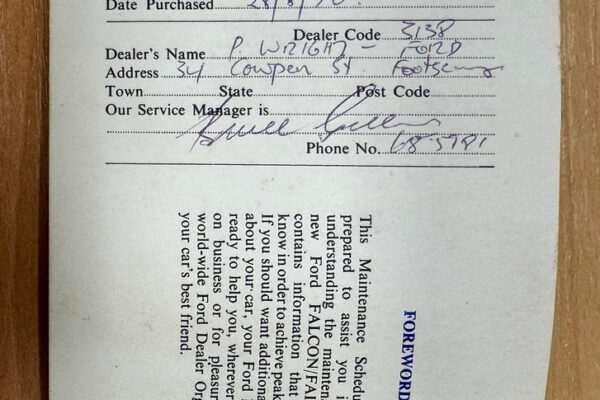 Date Purchased 28/8/70.
Dealer Code 3138
Dealer's Name P. WRIGHT – FORD
Address 34 Cowper St Footscray
Town State Post Code
Our Service Manager is
Phone No. 68-5781
FOREWORD
This Maintenance Schedu
prepared to assist you i
understanding the mainten
new Ford FALCON/FAI
contains information that
know in order to achieve peak
If you should want additiona
about your car, your Ford
ready to help you, wherever
on business or for pleasur
world-wide Ford Dealer Org
your car's best friend.